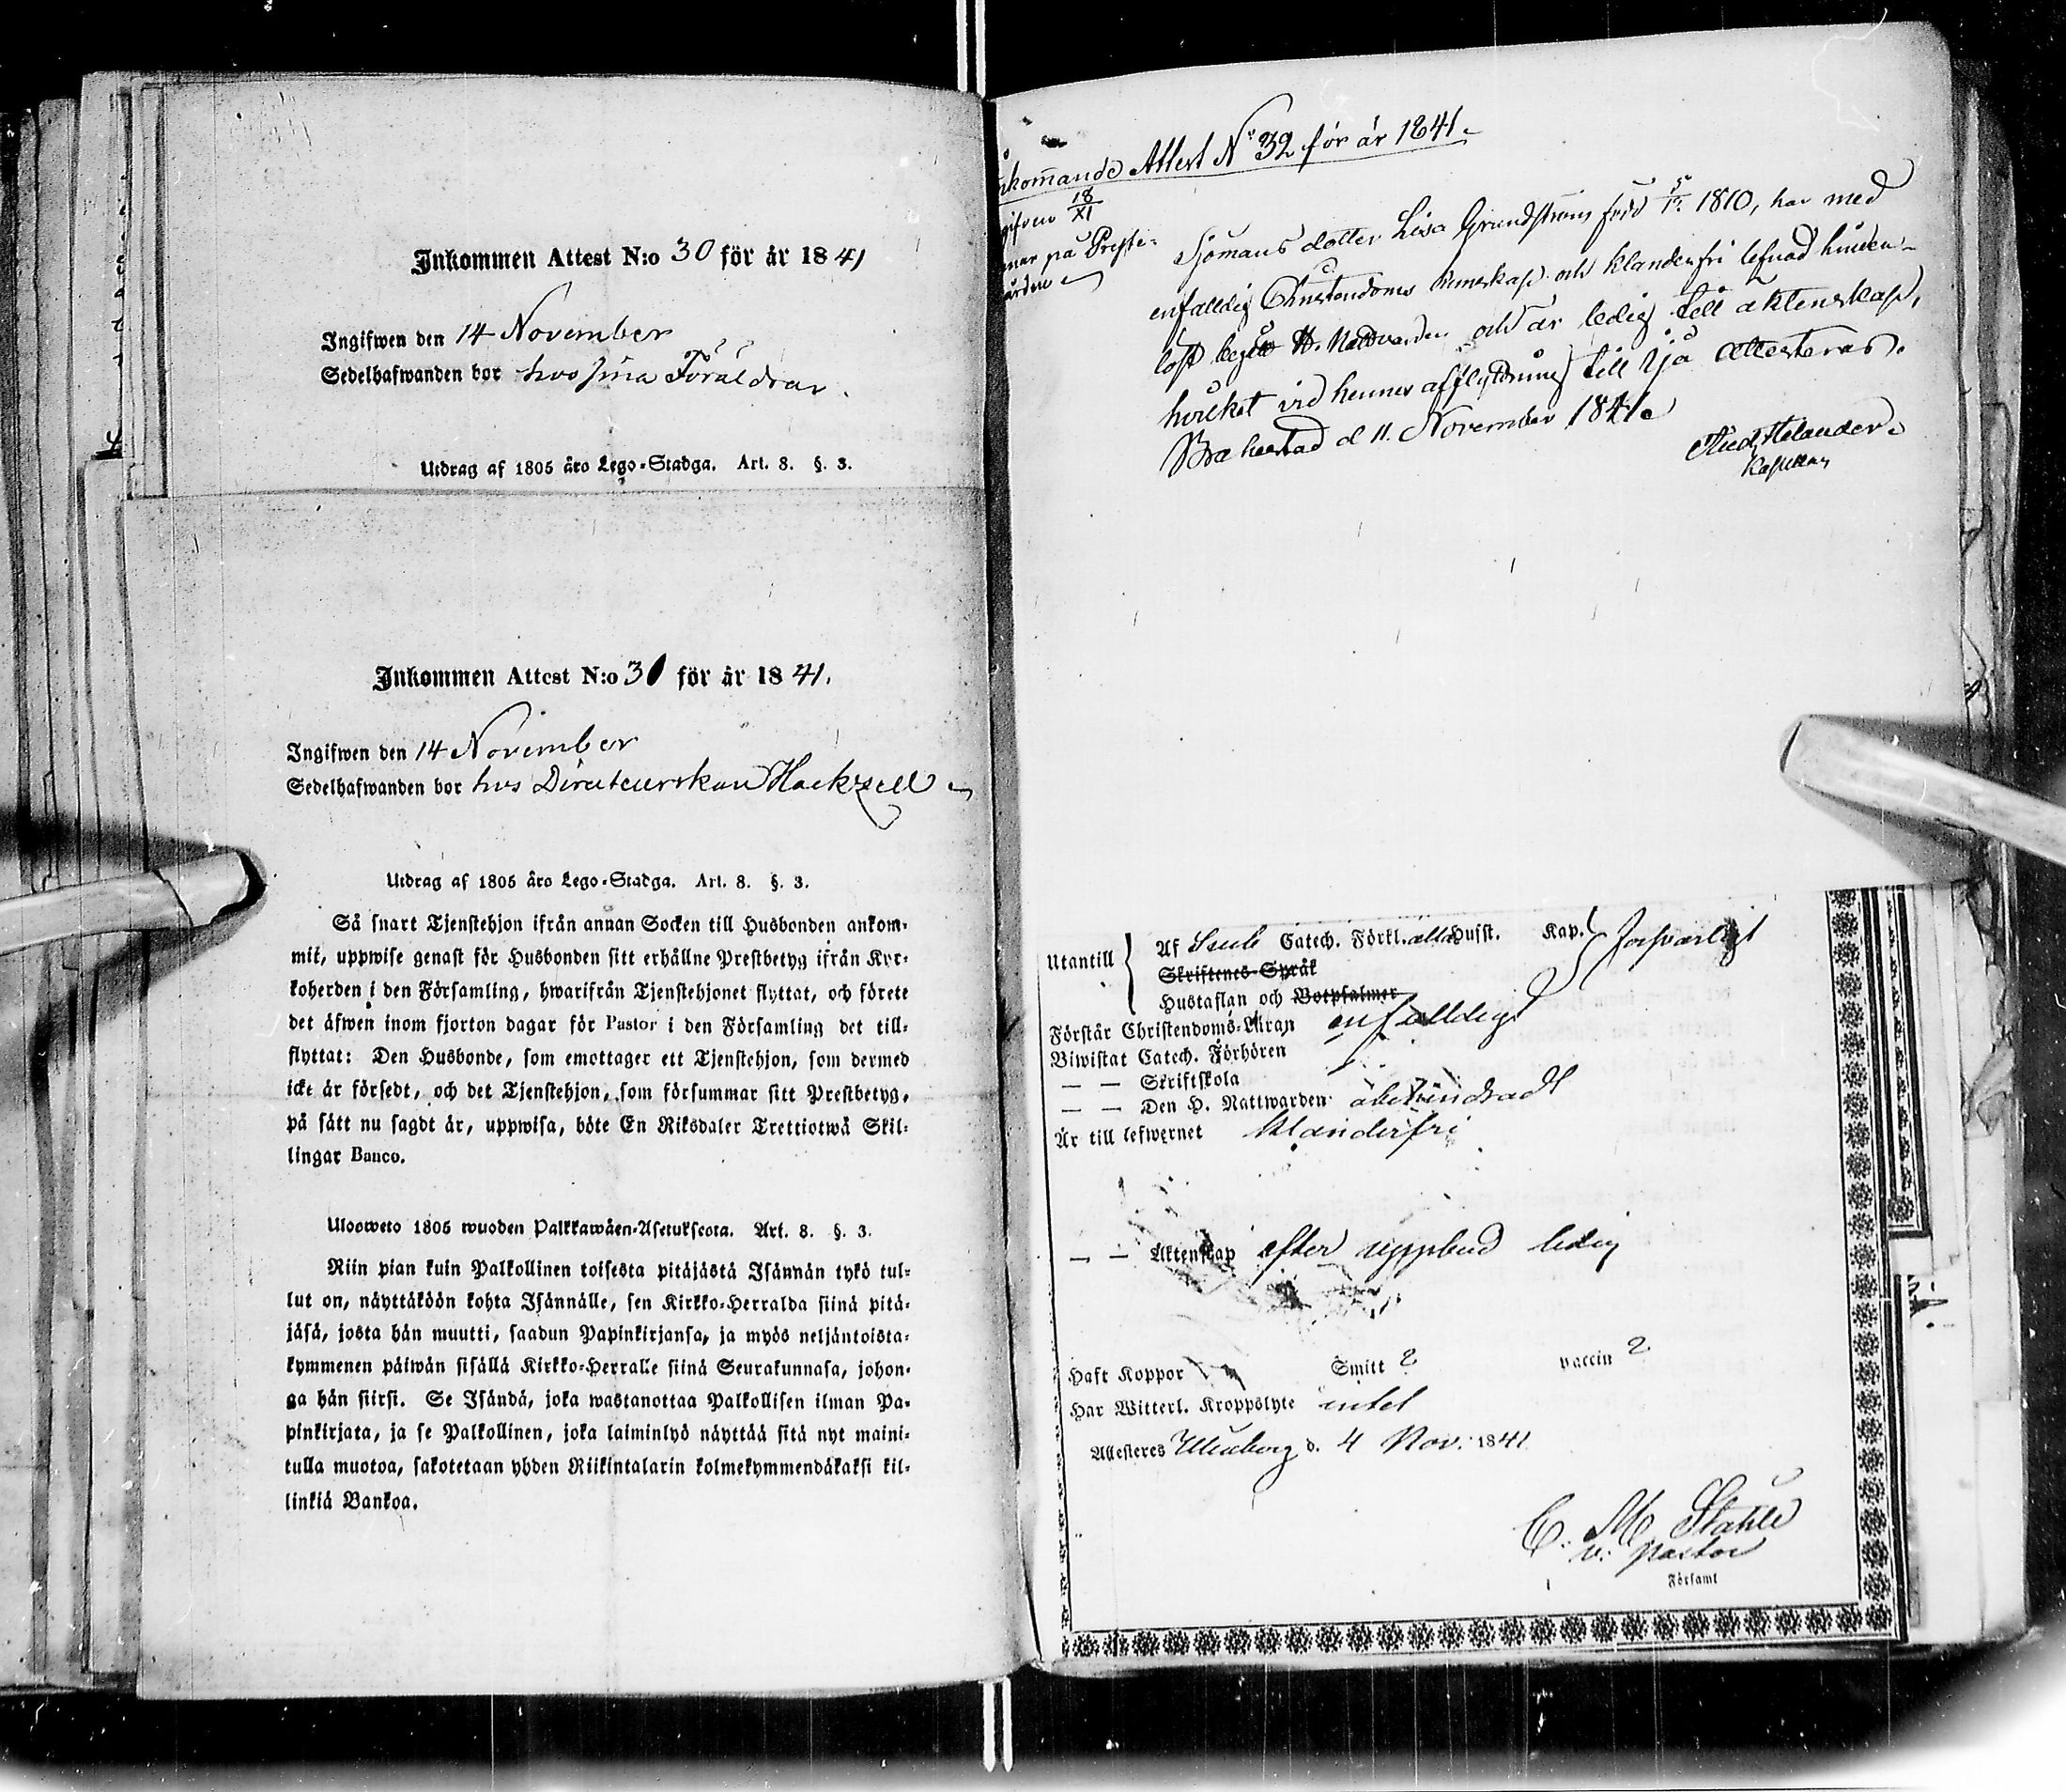 Inkommen Attest N:o 30 för år 1841
Ingifwen den 14 November
Sedelhafwanden bor hos sina Föräldrar.
Utdrag af 1805 åro Lego-Stadga. Art. 8. §. 3.
Inkommen Attest N:o 30 för år 1841.
Ingifwen den 14 November
Sedelhafwanden bor hos Directeurskan Hackzell
Utdrag af 1805 åro Lego-Stadga. Art. 8. §. 3.
Så snart Tjenstehjon ifrån annan Socken till Husbonden ankom-
mit, uppwise genast för Husbonden sitt erhållne Prestbetyg ifrån Kyr-
koherden i den Församling, hwarifrån Tjenstehjonet flyttat, och förete
det äfwen inom fjorton dagar för Pastor i den Församling det till-
flyttat: Den Husbonde, som emottager ett Tjenstehjon, som dermed
icke är försedt, och det Tjenstehjon, som försummar sitt Prestbetyg,
på sätt nu sagdt är, uppwisa, böte En Riksdaler Trettiotwå Skil-
lingar Banco.
Ulosweto 1805 wuoden Palkkawäen-Asetuksesta. Art. 8. §. 3.
Niin pian kuin Palkollinen toisesta pitäjästä Isännän tykö tul-
lut on, näyttäköön kohta Isännälle, sen Kirkko-Herralda siinä pitä-
jäsä, josta hän muutti, saadun Papinkirjansa, ja myös neljäntoista-
kymmenen päiwän sisällä Kirkko-Herralle siinä Seurakunnasa, johon-
ga hän siirsi. Se Isändä, joka wastanottaa Palkollisen ilman Pa-
pinkirjata, ja se Palkollinen, joka laiminlyö näyttää sitä nyt maini-
tulla muotoa, sakotetaan yhden Riikintalarin kolmekymmendäkaksi kil-
linkiä Bankoa.
komande Attest No 32 för år 1841.
18/XI
på Preste-
Sjömans dotter Lisa Grundström född 1810, har med
enfalldig Christendoms kunskap och klanderfri lefnad hinder-
löst begått H. Nattvarden och är ledig till äktenskap,
hvilket vid hennes afflyttning till Ijå attesteras.
Brahestad d 11. November 1841.
Helander
Kapellan
Utantill Af Catech. Förkl. alla Husst. Kap. försvarligt
Skriftenes Språk
Hustaflan och Botpsalmer
Förstår Christendoms-Läran enfaldigt
Biwistat Catech. Förhören
— — Skriftskola
— — Den H. Nattwarden obehindradt
Är till lefwernet klanderfri
— — Äktenskap efter uppbud ledig
Haft Koppor Smitt ? vaccin ?
Har Witterl. Kroppslyte intet
Attesteres Uleåborg d. 4 Nov. 1841
C. M. Ståhle
v. pastor
Församt